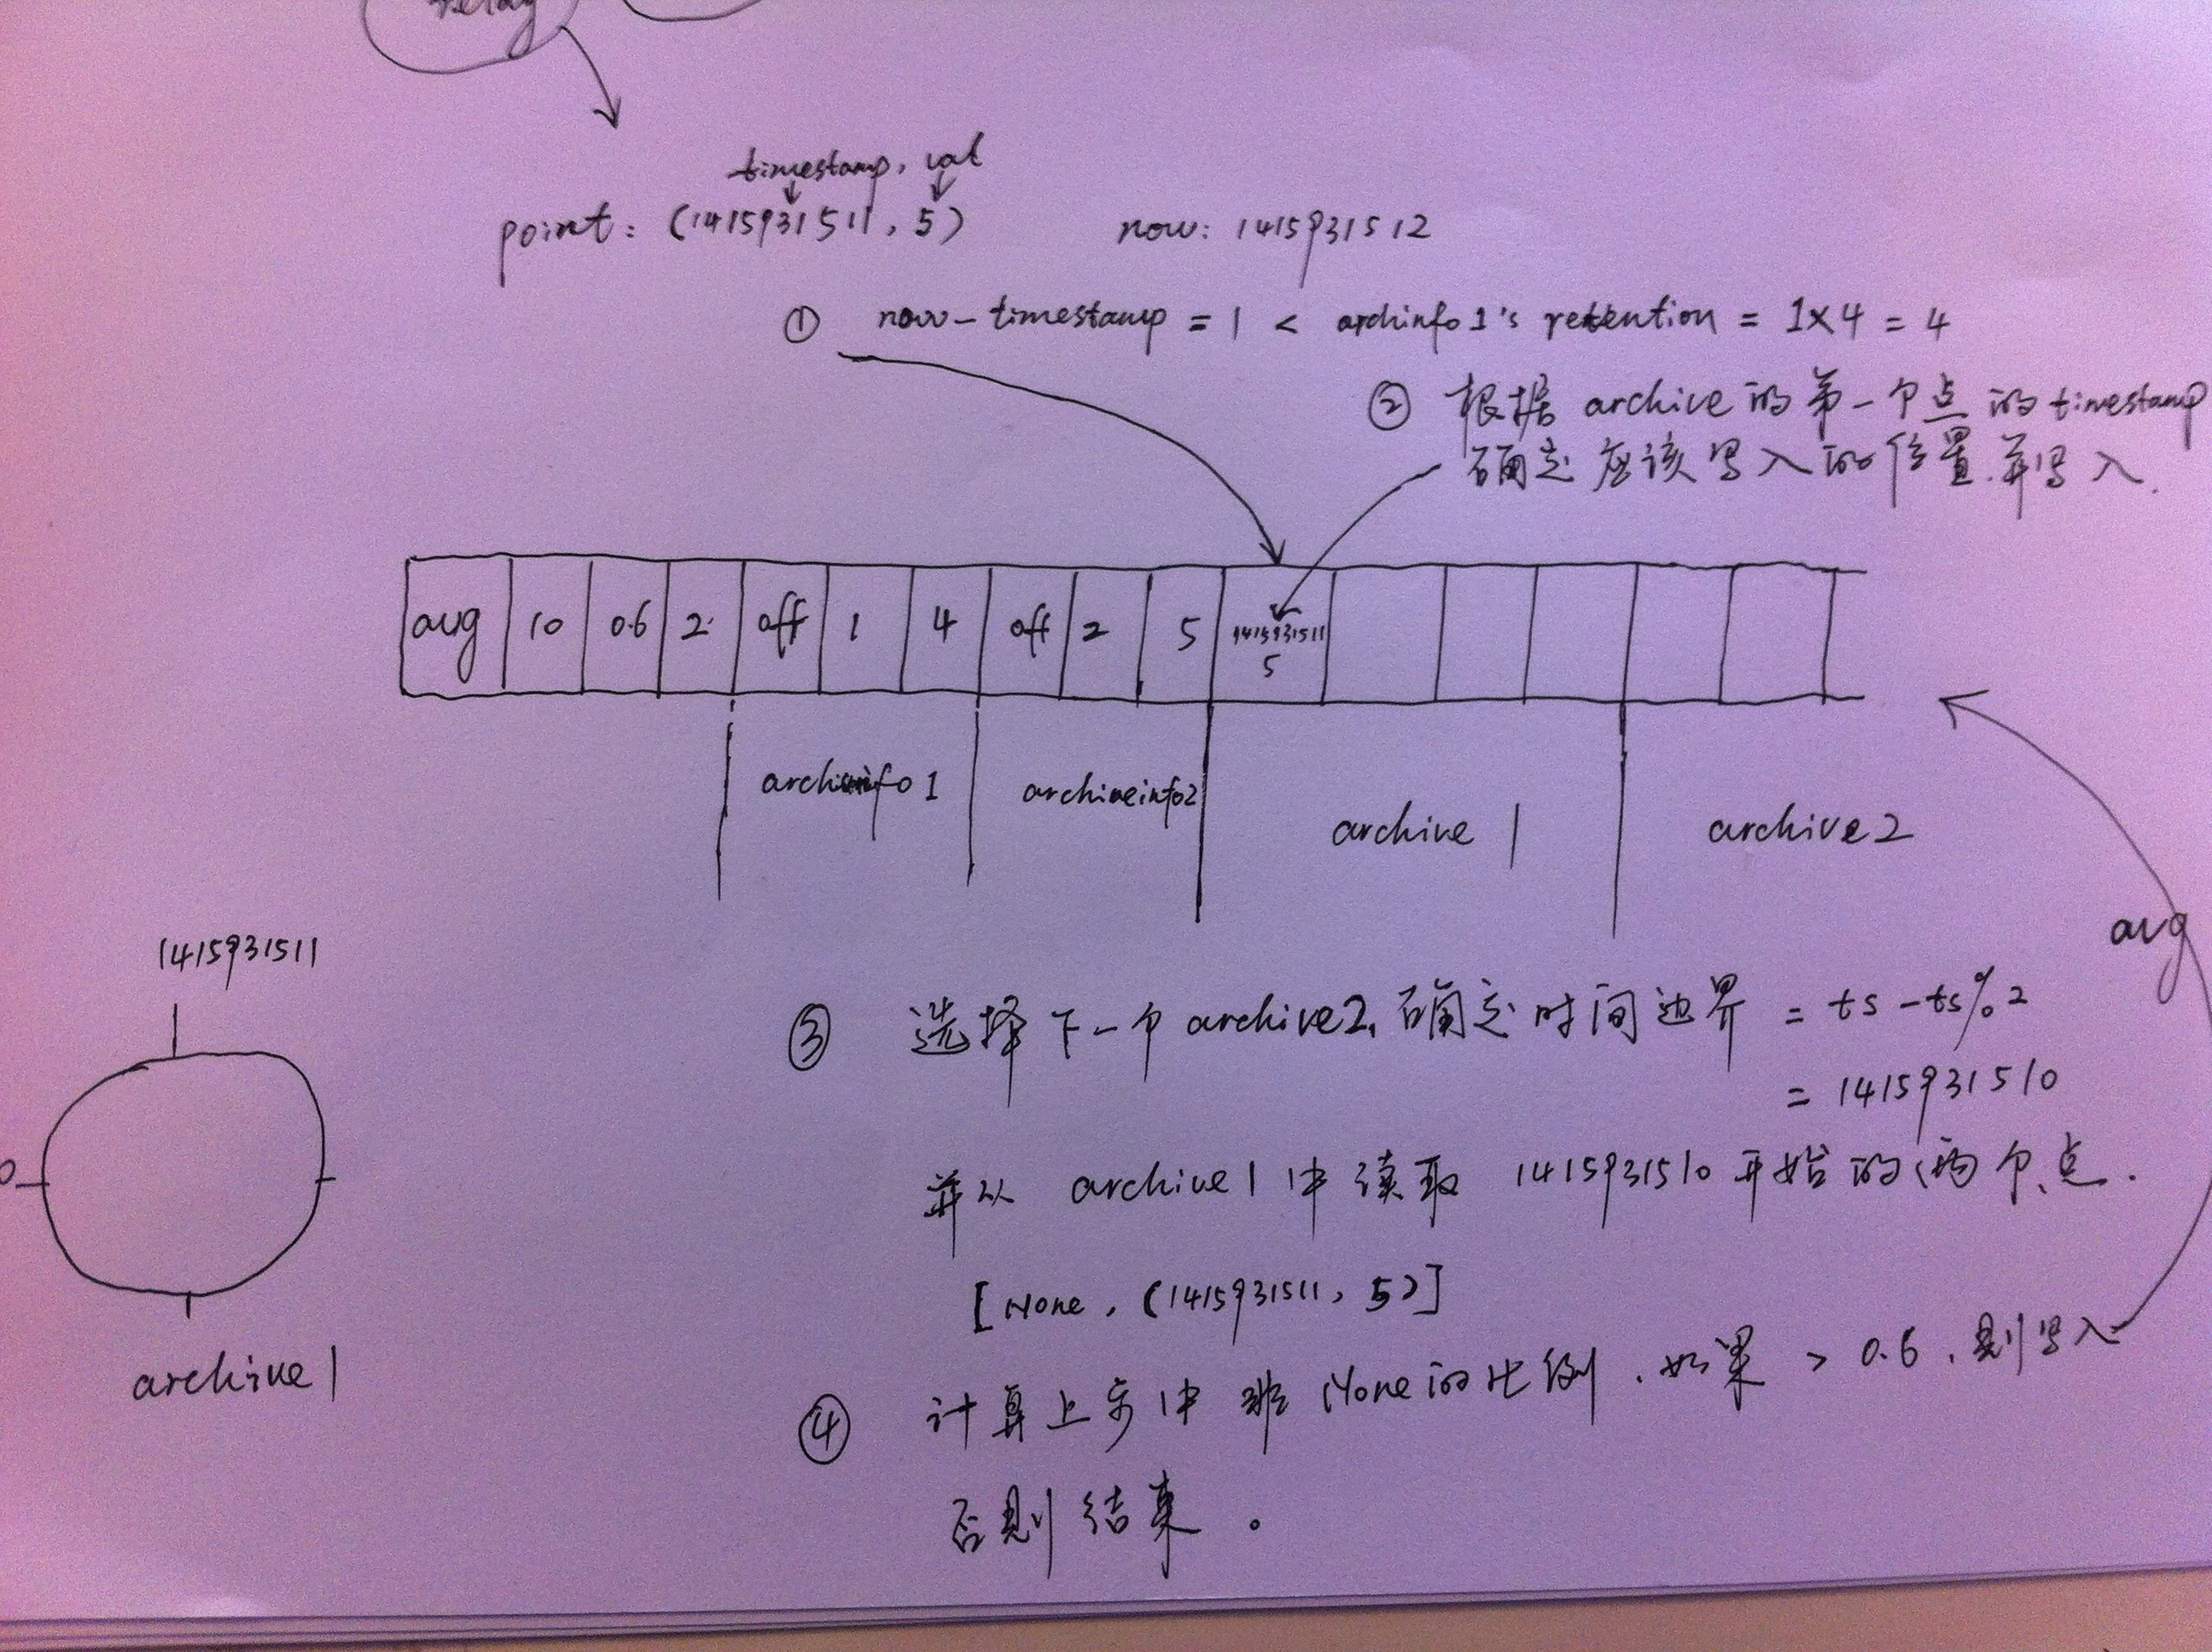 relay
timestamp, val
point: (1415931511, 5)
now: 1415931512
① now-timestamp = 1 < archinfo1's retention = 1×4 = 4
② 根据 archive的第一个点的timestamp
确定应该写入的位置.并写入.
avg 10 0.6 2 off 1 4 off 2 5 1415931511
5
archinfo1 archiveinfo2 archive1 archive2
avg
1415931511
0
archive1
③ 选择下一个archive2,确定时间边界 = ts-ts%2
= 1415931510
并从 archive1中读取 1415931510开始的两个点.
[None, (1415931511, 5)]
④ 计算上步中非None的比例.如果 > 0.6,则写入
否则结束。